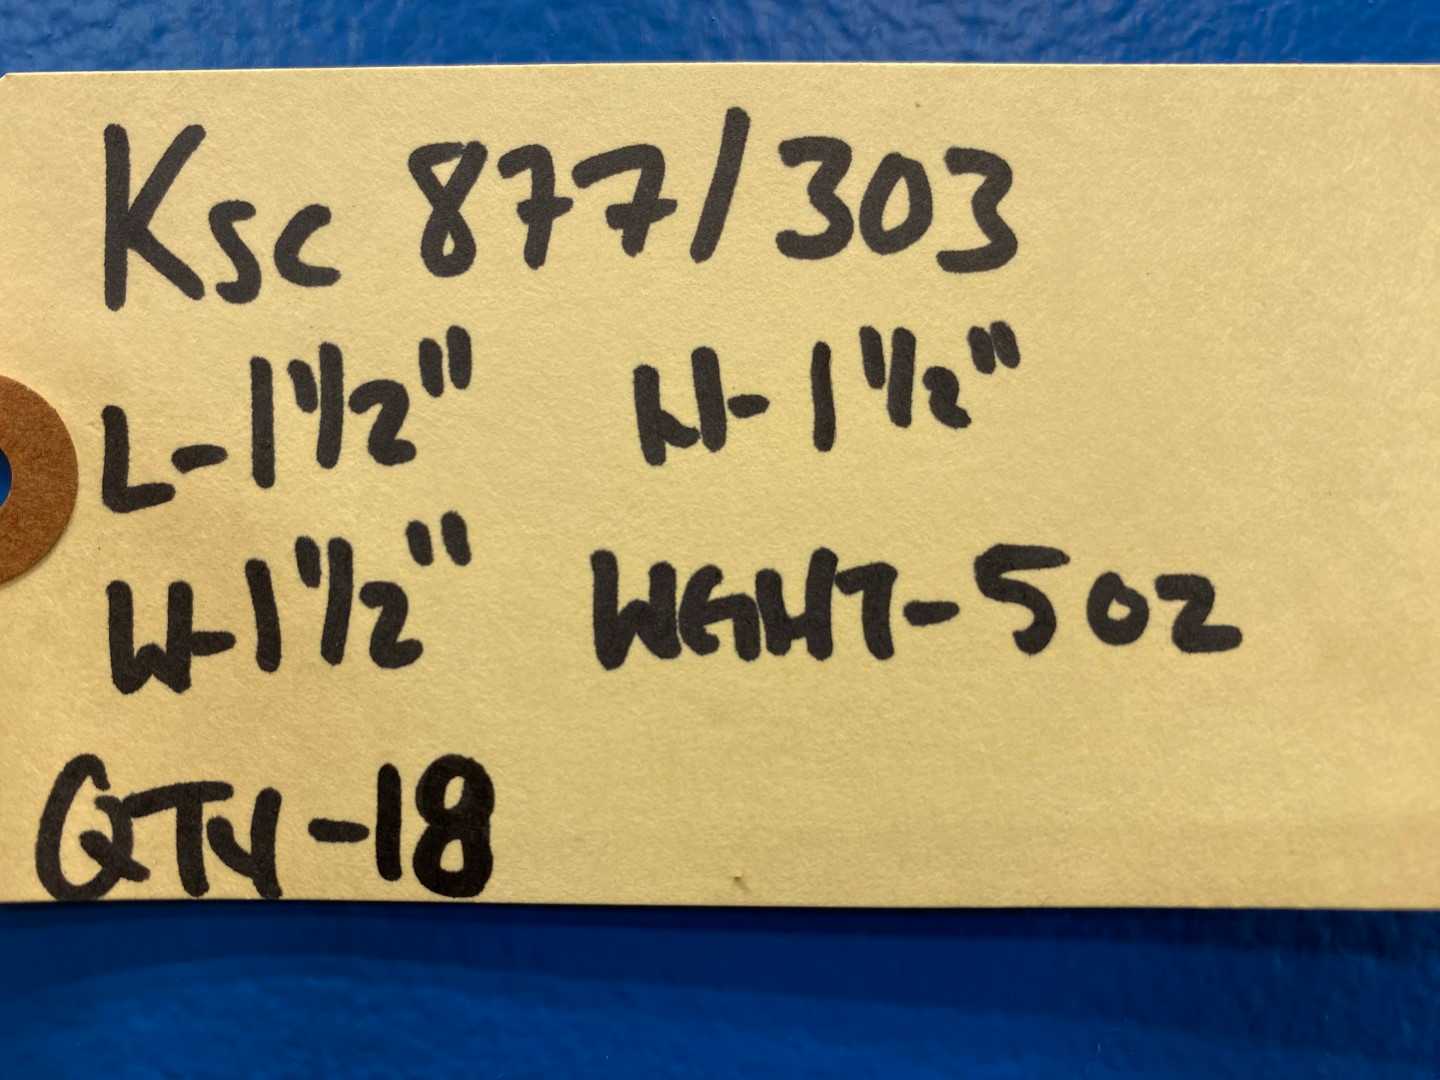 Ksc 877/303
L-1 1/2" H-1 1/2"
W-1 1/2" WGHT-5 oz
QTY-18